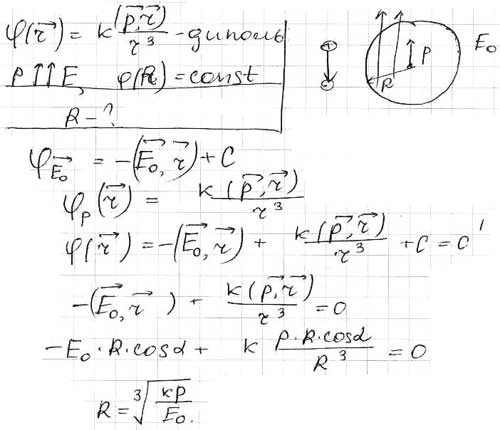 φ(r⃗) = k (p⃗, r⃗) / r³ - диполь
P ↑↑ E, φ(R) = const
R - ?
E₀
P
R
φ_E⃗₀ = -(E⃗₀, r⃗) + C
φ_p(r⃗) = k (p⃗, r⃗) / r³
φ(r⃗) = -(E⃗₀, r⃗) + k (p⃗, r⃗) / r³ + C = C'
-(E⃗₀, r⃗) + k (p⃗, r⃗) / r³ = 0
-E₀ · R · cosα + k P · R · cosα / R³ = 0
R = ³√(kp / E₀).